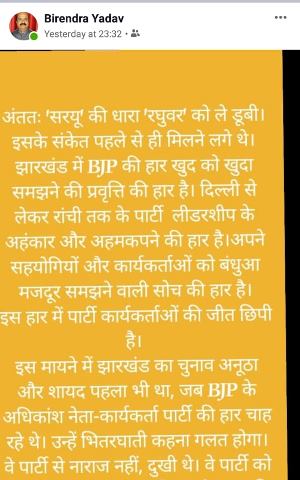 Birendra Yadav
Yesterday at 23:32 ·
अंततः 'सरयू' की धारा 'रघुवर' को ले डूबी।
इसके संकेत पहले से ही मिलने लगे थे।
झारखंड में BJP की हार खुद को खुदा
समझने की प्रवृत्ति की हार है। दिल्ली से
लेकर रांची तक के पार्टी लीडरशीप के
अहंकार और अहमकपने की हार है।अपने
सहयोगियों और कार्यकर्ताओं को बंधुआ
मजदूर समझने वाली सोच की हार है।
इस हार में पार्टी कार्यकर्ताओं की जीत छिपी
है।
इस मायने में झारखंड का चुनाव अनूठा
और शायद पहला भी था, जब BJP के
अधिकांश नेता-कार्यकर्ता पार्टी की हार चाह
रहे थे। उन्हें भितरघाती कहना गलत होगा।
वे पार्टी से नाराज नहीं, दुखी थे। वे पार्टी को